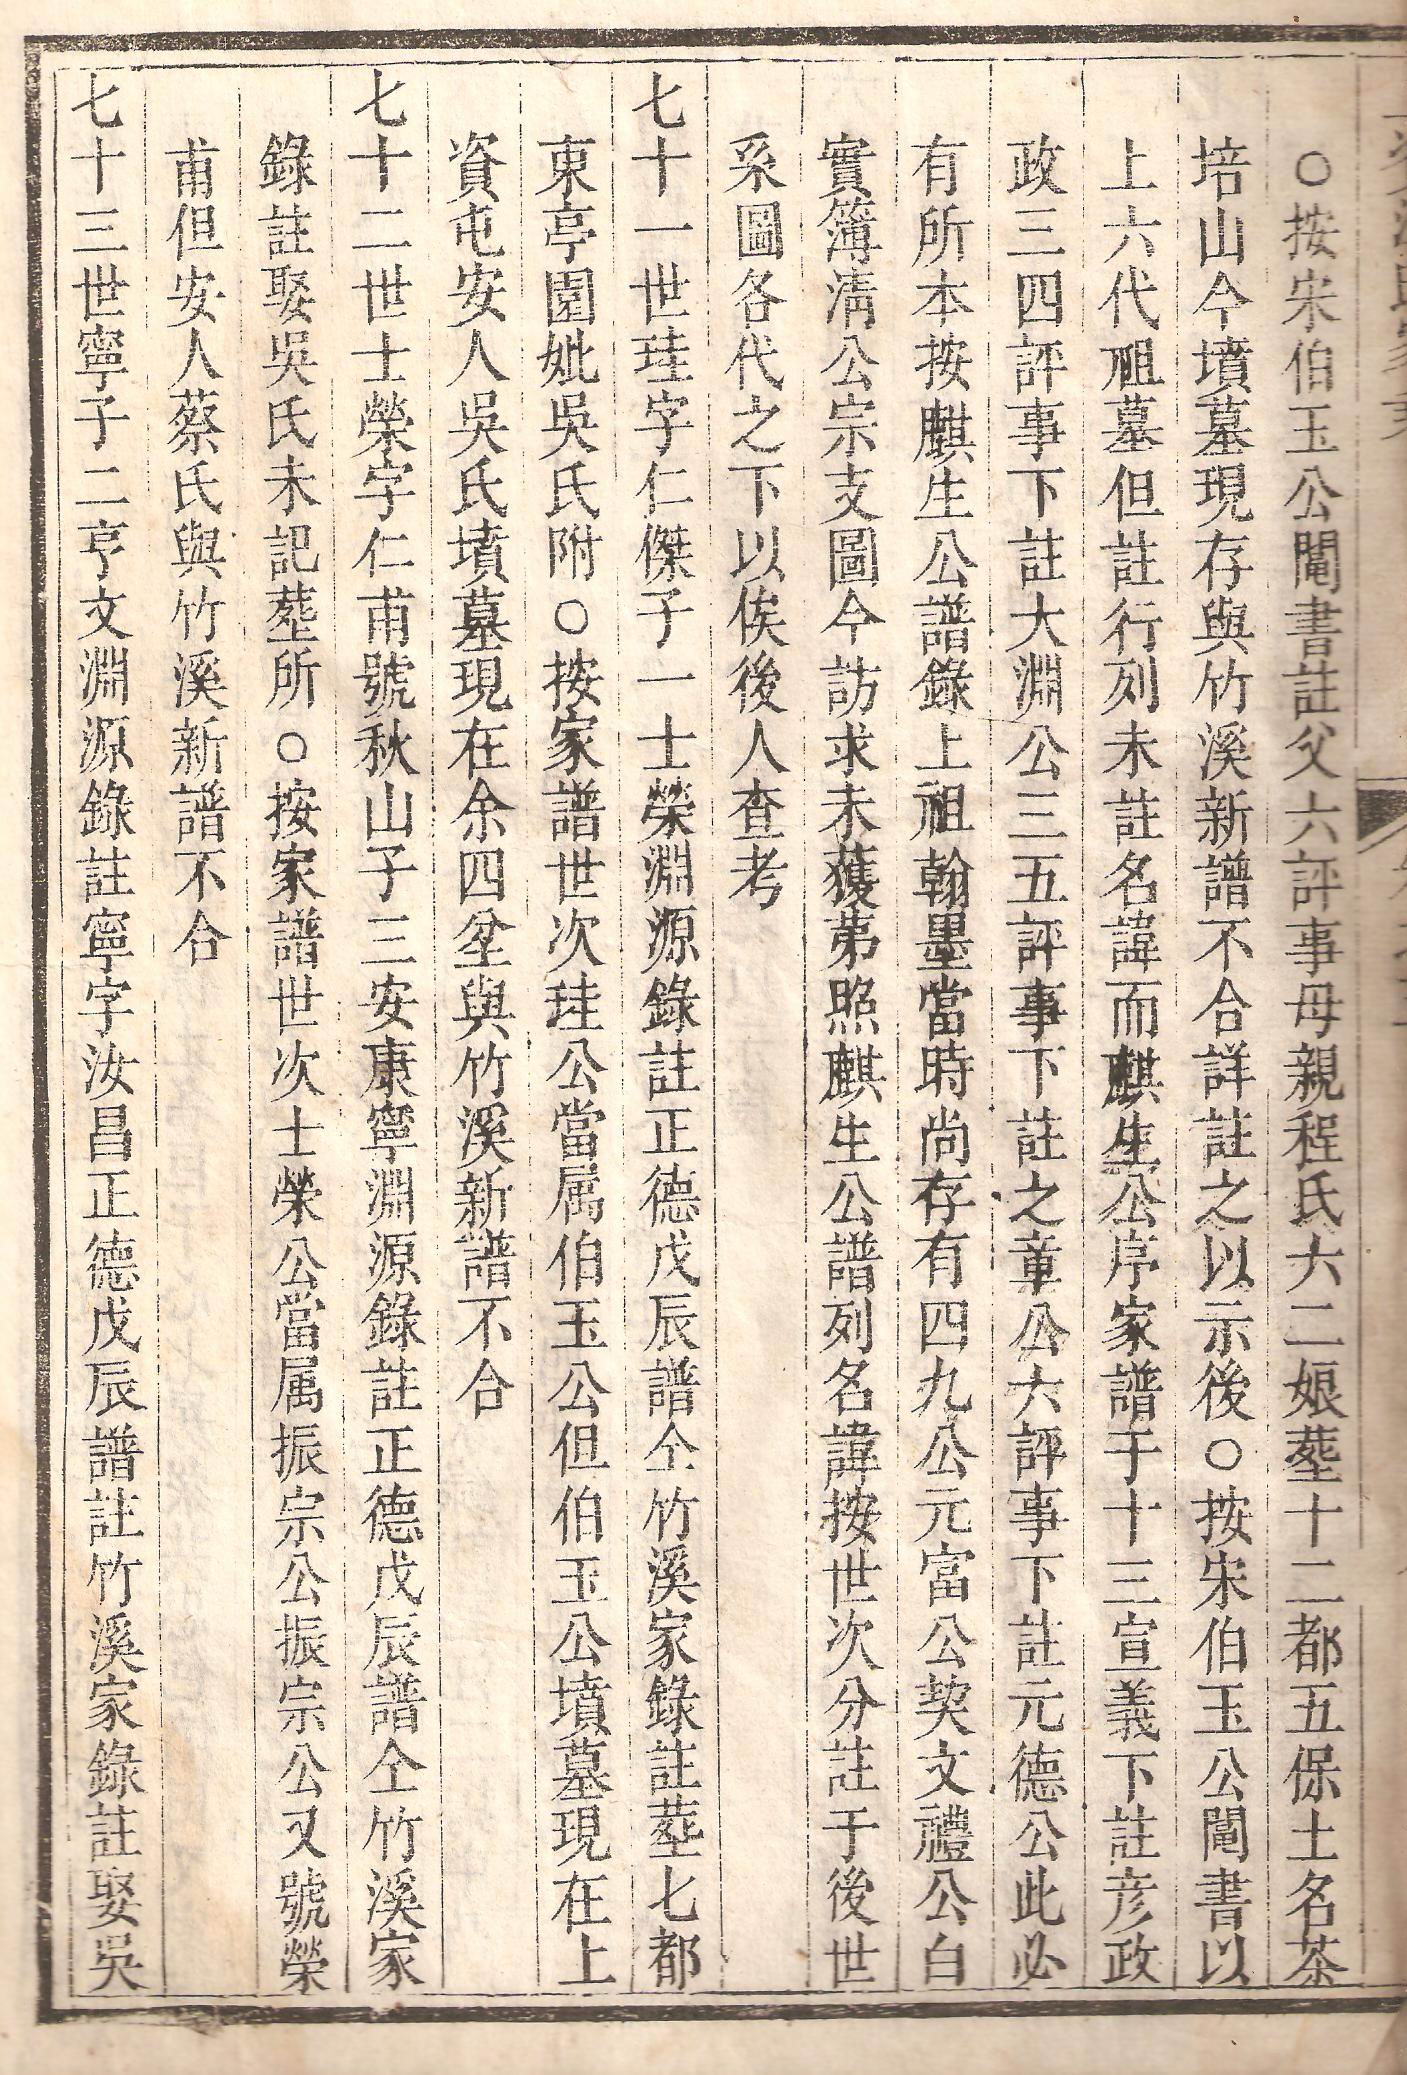 ○按宋伯玉公鬮書註父六評事母親程氏六二娘塟十二都五保土名茶
培山今墳墓現存與竹溪新譜不合詳註之以示後○按宋伯玉公鬮書以
上六代祖墓但註行列未註名諱而麒生公序家譜于十三宣義下註彦政
政三四評事下註大淵公三五評事下註之章公六評事下註元德公此必
有所本按麒生公譜錄上祖翰墨當時尚存有四九公元富公契文禮公白
實簿淸公宗支圖今訪求未獲第照麒生公譜列名諱按世次分註于後世
系圖各代之下以俟後人查考
七十一世珪字仁傑子一士榮淵源錄註正德戊辰譜仝竹溪家錄註塟七都
東亭園妣吳氏附○按家譜世次珪公當属伯玉公但伯玉公墳墓現在上
資屯安人吳氏墳墓現在余四坌與竹溪新譜不合
七十二世士榮字仁甫號秋山子三安康寧淵源錄註正德戊辰譜仝竹溪家
錄註娶吳氏未記塟所○按家譜世次士榮公當属振宗公振宗公又號榮
甫但安人蔡氏與竹溪新譜不合
七十三世寧子二亨文淵源錄註寧字汝昌正德戊辰譜註竹溪家錄註娶吳